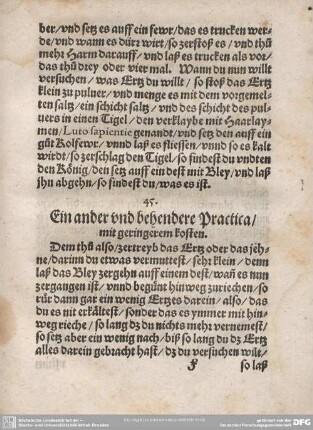 ber/vnd setz es auff ein fewr/das es trucken wer-
de/vnd wann es dürz wirt/so zerstoß es/vnd thů
mehr Harm darauff/vnd laß es trucken als vor/
das thů drey oder vier mal. Wann du nun willt
versuchen/was Ertz du willt/so stoß das Ertz
klein zu puluer/vnd menge es mit dem vorgemel-
ten saltz/ein schicht saltz/vnd des schicht des pul-
uers in einen Tigel/den verklaybe mit Haarlay-
men/Luto sapientie genandt/vnd setz den auff ein
gůt Kolfewr/vnnd laß es fliessen/vnnd so es kalt
wirdt/so zerschlag den Tigel/so findest du vndten
den König/den setz auff ein dest mit Bley/vnd laß
jhn abgehn/so findest du/was es ist.
45.
Ein ander vnd behendere Practica/
mit geringerem kosten.
Dem thů also/zertreyb das Ertz oder das jeh-
ne/darinn du etwas vermuttest/sehr klein/denn
laß das Bley zergehn auff einem dest/wañ es nun
zergangen ist/vnnd begünt hinweg zuriechen/so
rür dann gar ein wenig Ertzes darein/also/das
du es nit erkältest/sonder das es ymmer mit hin-
weg rieche/so lang dz du nichts mehr vernemest/
so setz aber ein wenig nach/biß so lang du dz Ertz
alles darein gebracht hast/dz du versuchen wilt/
so laß